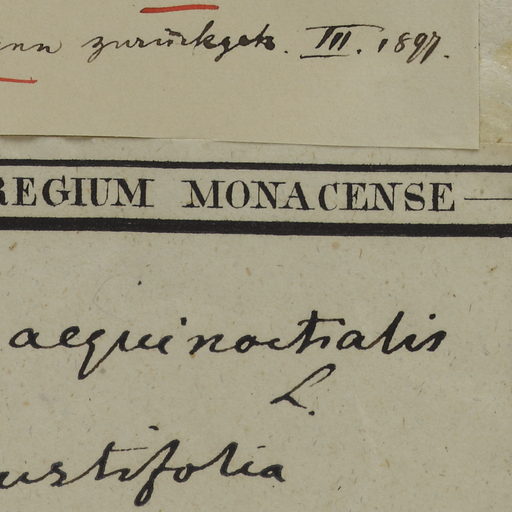 nn zurückgek. III. 1897.
REGIUM MONACENSE
aequinoctialis
L.
ustifolia